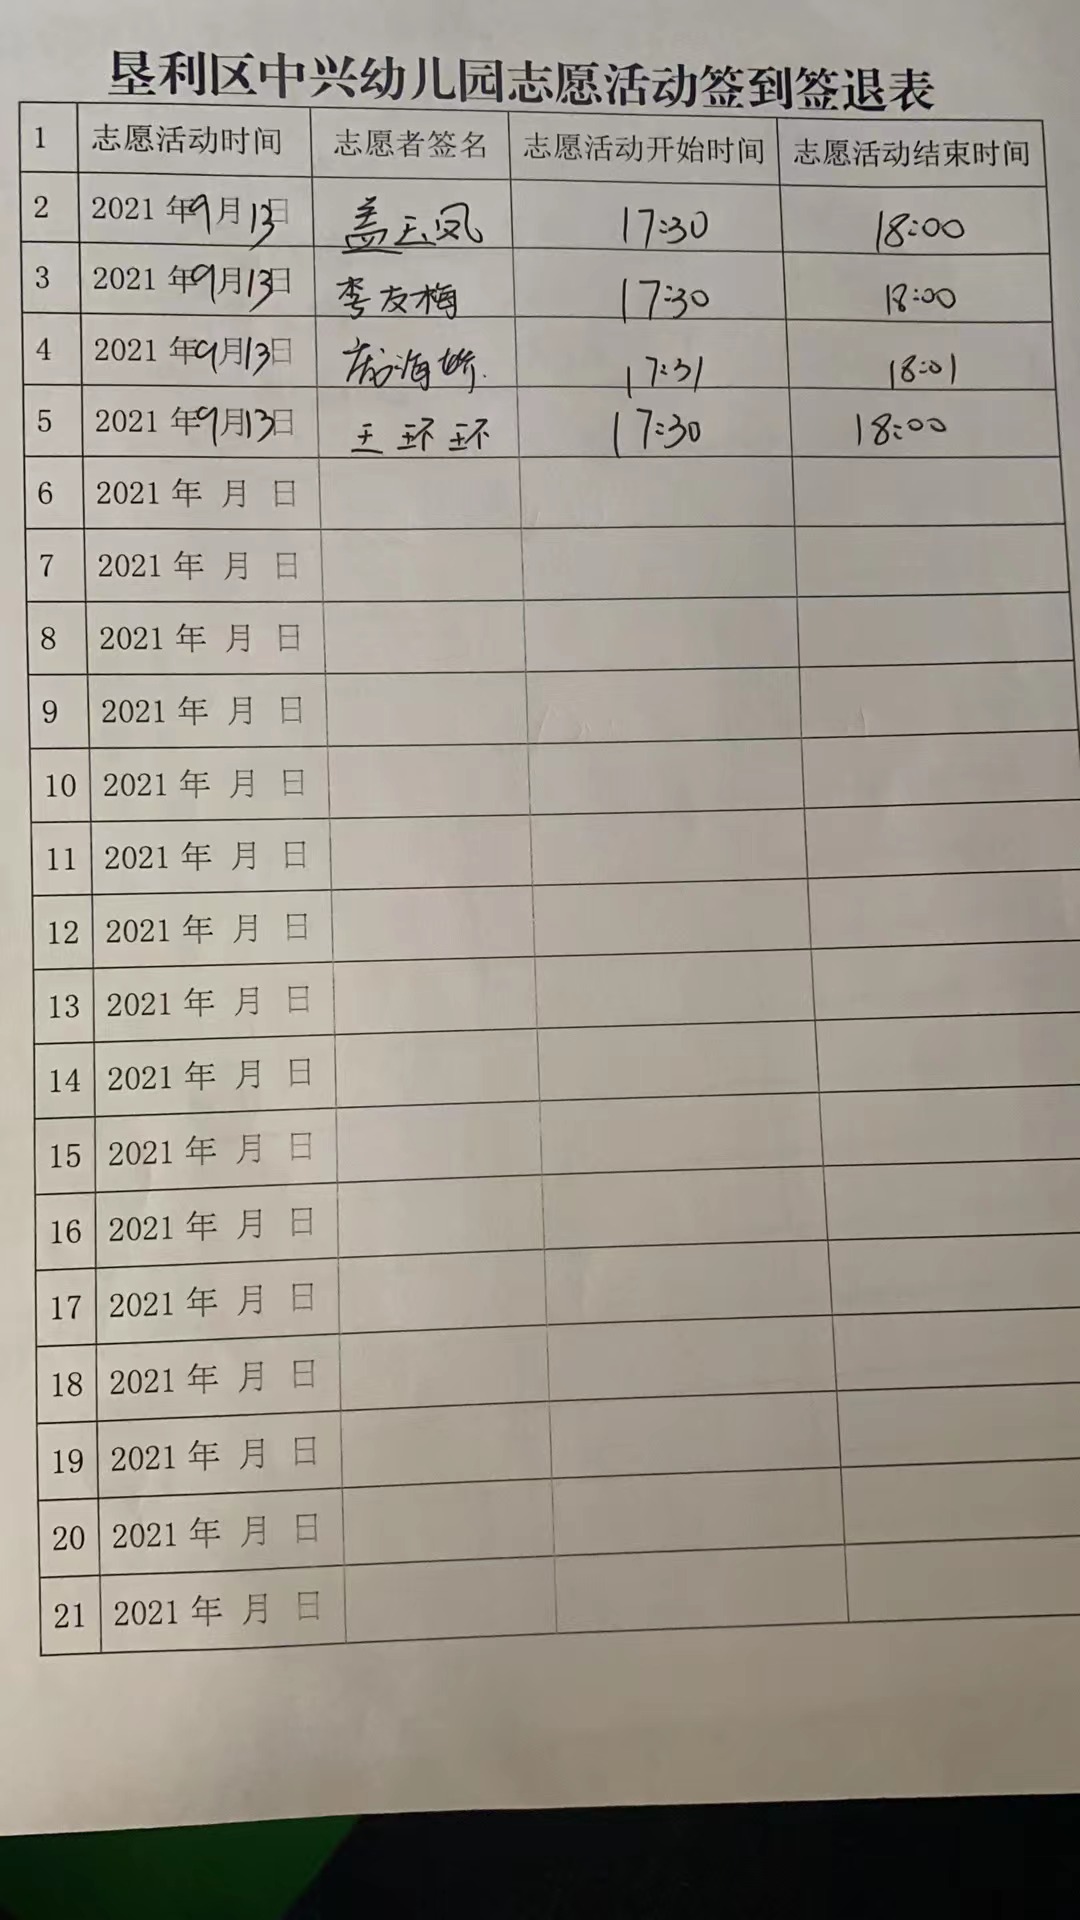 垦利区中兴幼儿园志愿活动签到签退表
1 志愿活动时间 志愿者签名 志愿活动开始时间 志愿活动结束时间
2 2021 年9月13日 盖玉凤 17:30 18:00
3 2021 年9月13日 李友梅 17:30 18:00
4 2021 年9月13日 海娇 17:31 18:01
5 2021 年9月13日 王环环 17:30 18:00
6 2021 年 月 日
7 2021 年 月 日
8 2021 年 月 日
9 2021 年 月 日
10 2021 年 月 日
11 2021 年 月 日
12 2021 年 月 日
13 2021 年 月 日
14 2021 年 月 日
15 2021 年 月 日
16 2021 年 月 日
17 2021 年 月 日
18 2021 年 月 日
19 2021 年 月 日
20 2021 年 月 日
21 2021 年 月 日